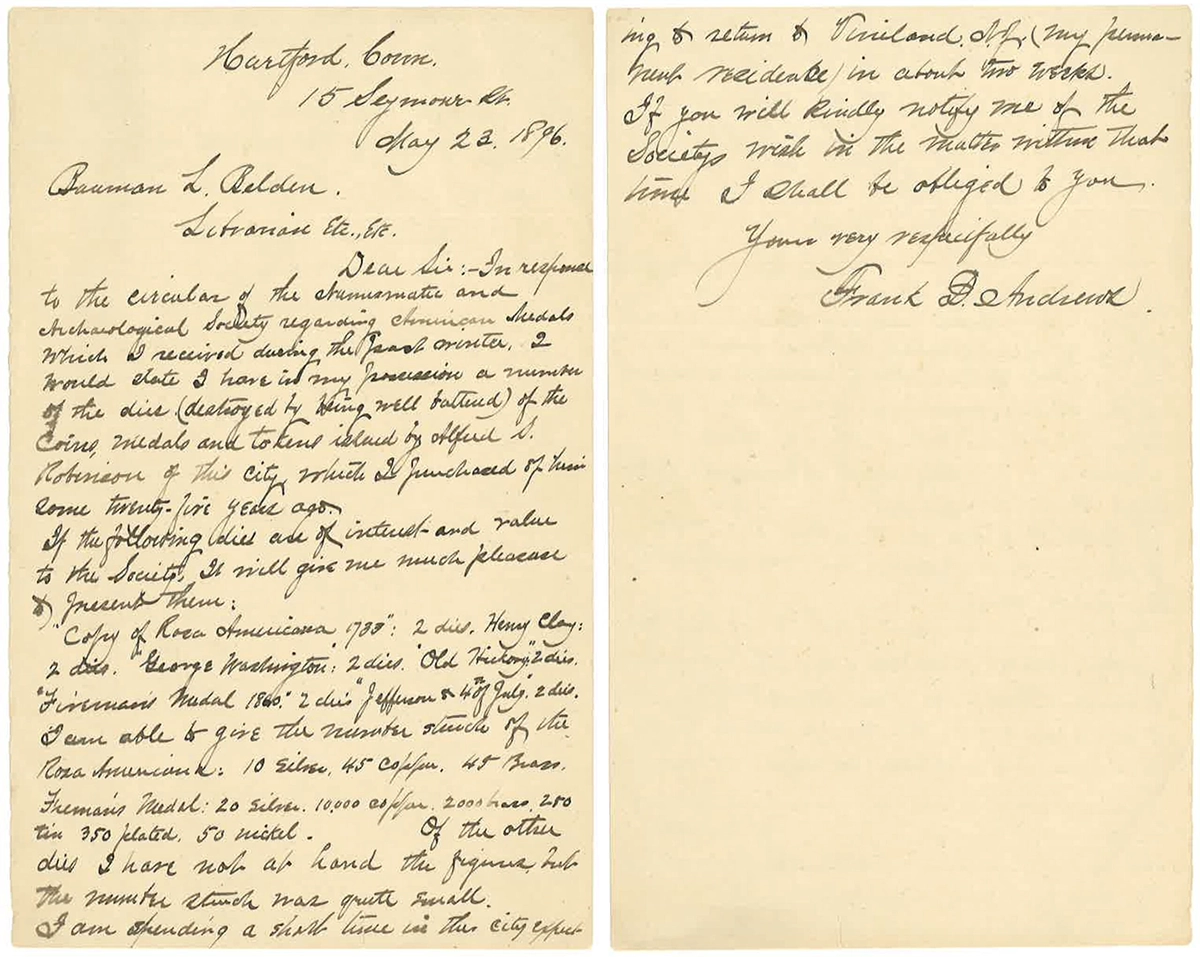 Hartford, Conn.
15 Seymour St.
May 23. 1896.
Bauman L. Belden.
Librarian Etc., Etc.
Dear Sir:- In response
to the circular of the Numismatic and
Archaeological Society regarding American Medals
which I received during the past winter, I
would state I have in my possession a number
of the dies (destroyed by being well battered) of the
Coins, medals and tokens issued by Alfred S.
Robinson of this city, which I purchased of him
some twenty-five years ago.
If the following dies are of interest and value
to the Society, It will give me much pleasure
to present them:
"Copy of Rosa Americana 1733": 2 dies. Henry Clay:
2 dies. "George Washington": 2 dies. "Old Hickory," 2 dies.
"Fireman's Medal 1860." 2 dies "Jefferson & 4th of July", 2 dies.
I am able to give the number struck of the
Rosa Americana: 10 Silver, 45 Copper. 45 Brass.
Fireman's Medal: 20 Silver. 10,000 copper. 2000 brass. 250
tin 350 plated. 50 nickel. Of the other
dies I have not at hand the figures, but
the number struck was quite small.
I am spending a short time in this city expect
ing to return to Vineland, N.J. (my perma-
nent residence) in about two weeks.
If you will kindly notify me of the
Society's wish in the matter within that
time I shall be obliged to you.
Yours very respectfully
Frank D. Andrews.